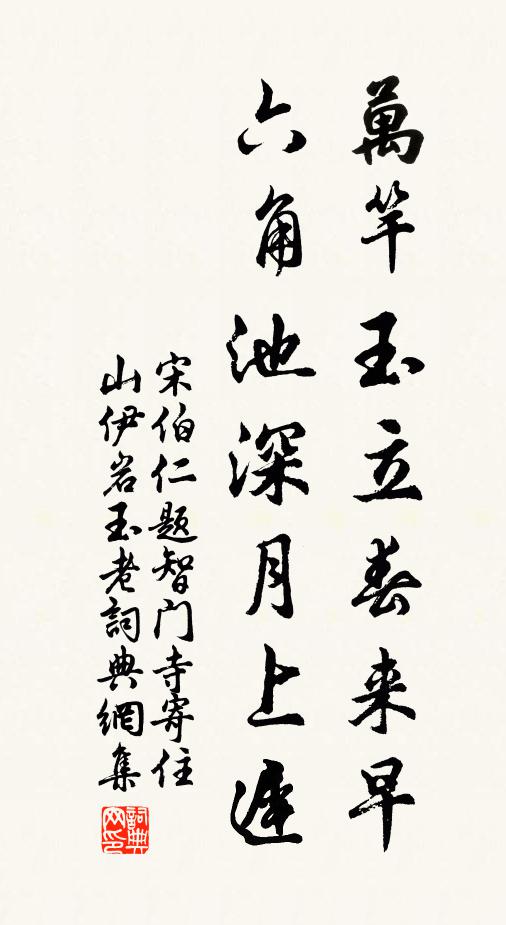 萬竿玉立春来早
六角池深月上遲
宋伯仁题智门寺寄住
山伊岩玉老詞典網集
詞典网印